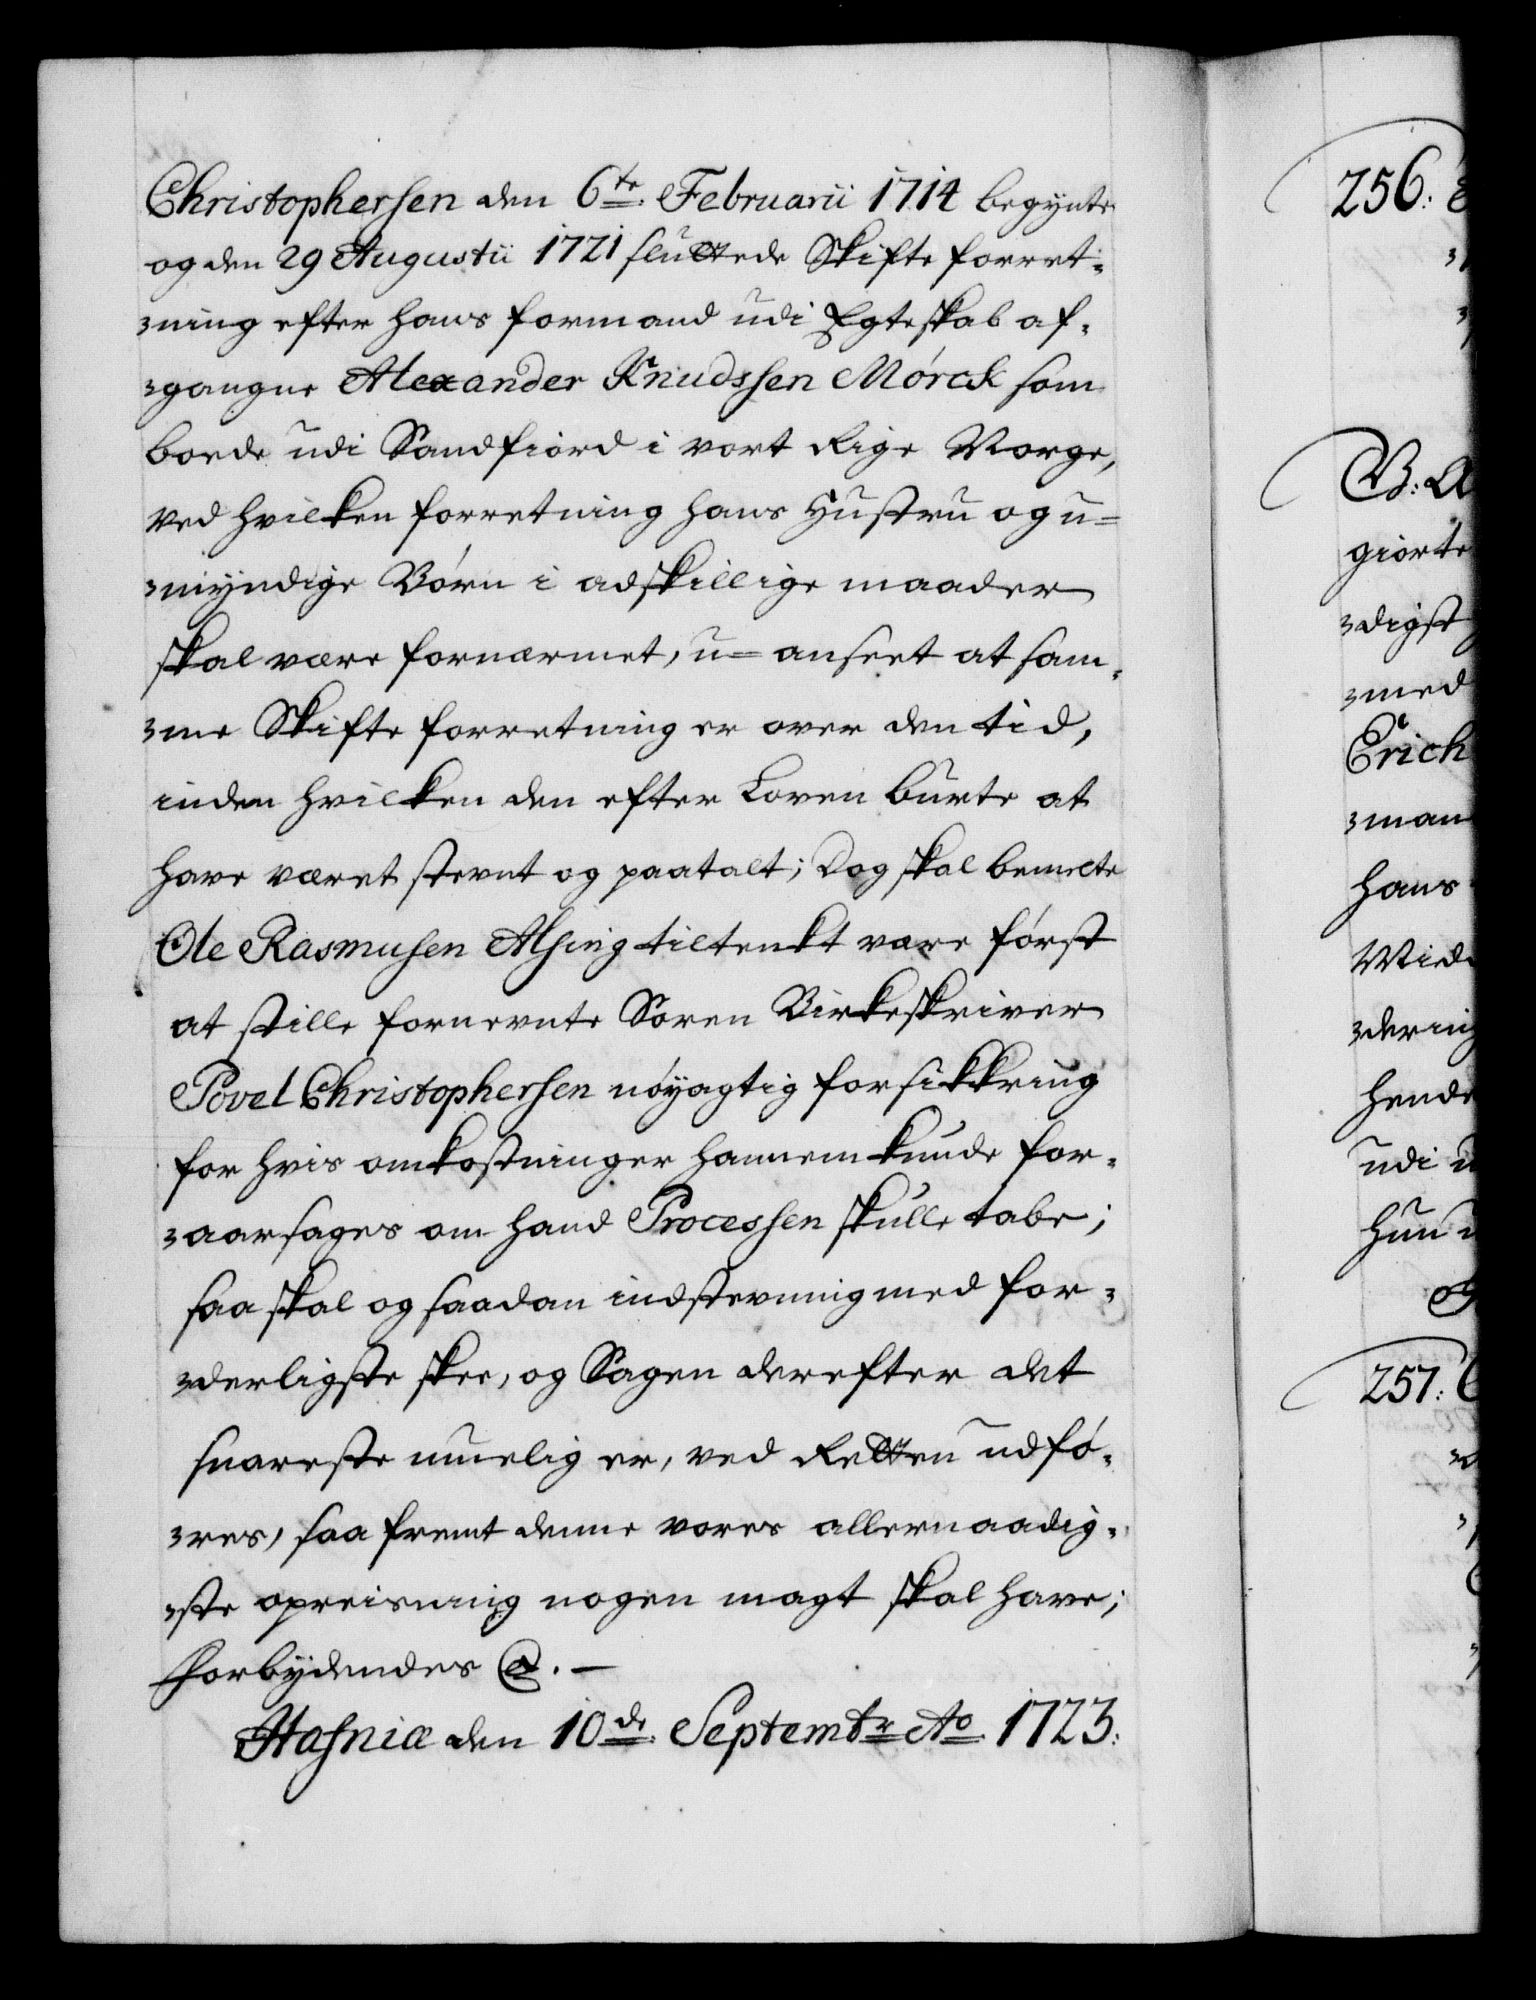 Christophersen den 6te. Februarii 1714 begynte
og den 29 Augustii 1721 sluttede Skifte forret-
-ning efter hans formand udi Egteskab af-
-gangne Alexander Knudssen Mórck som
boede udi Sandfiord i vort Rige Norge,
ved hvilken forretning hans Hustru og u-
-myndige Börn i adskillige maader
skal være fornærmet, u-anseet at sam-
-me Skifte forretning er over den tid,
inden hvilken den efter Loven burte at
have været stevnt og paatalt; Dog skal bemelte
Ole Rasmusen Alsing tiltenkt være fórst
at stille fornevnte Sören Birkeskriver
Povel Christophersen nóyagtig forsikkring
for hvis omkostninger hannem kunde for-
-aarsages om hand Processen skulle tabe;
saa skal og saadan indstevning med for-
-derligste skee, og Sagen derefter det
snareste muelig er, ved Retten udfó-
-res, saa fremt denne vores allernaadig-
-ste opreisning nogen magt skal have;
Forbydendes @. —
Hafniæ den 10de. Septembr Ao 1723.
256:
giorte
-digst
-med
Erich
-man
hans
-dering
hende
udi
hun
257: